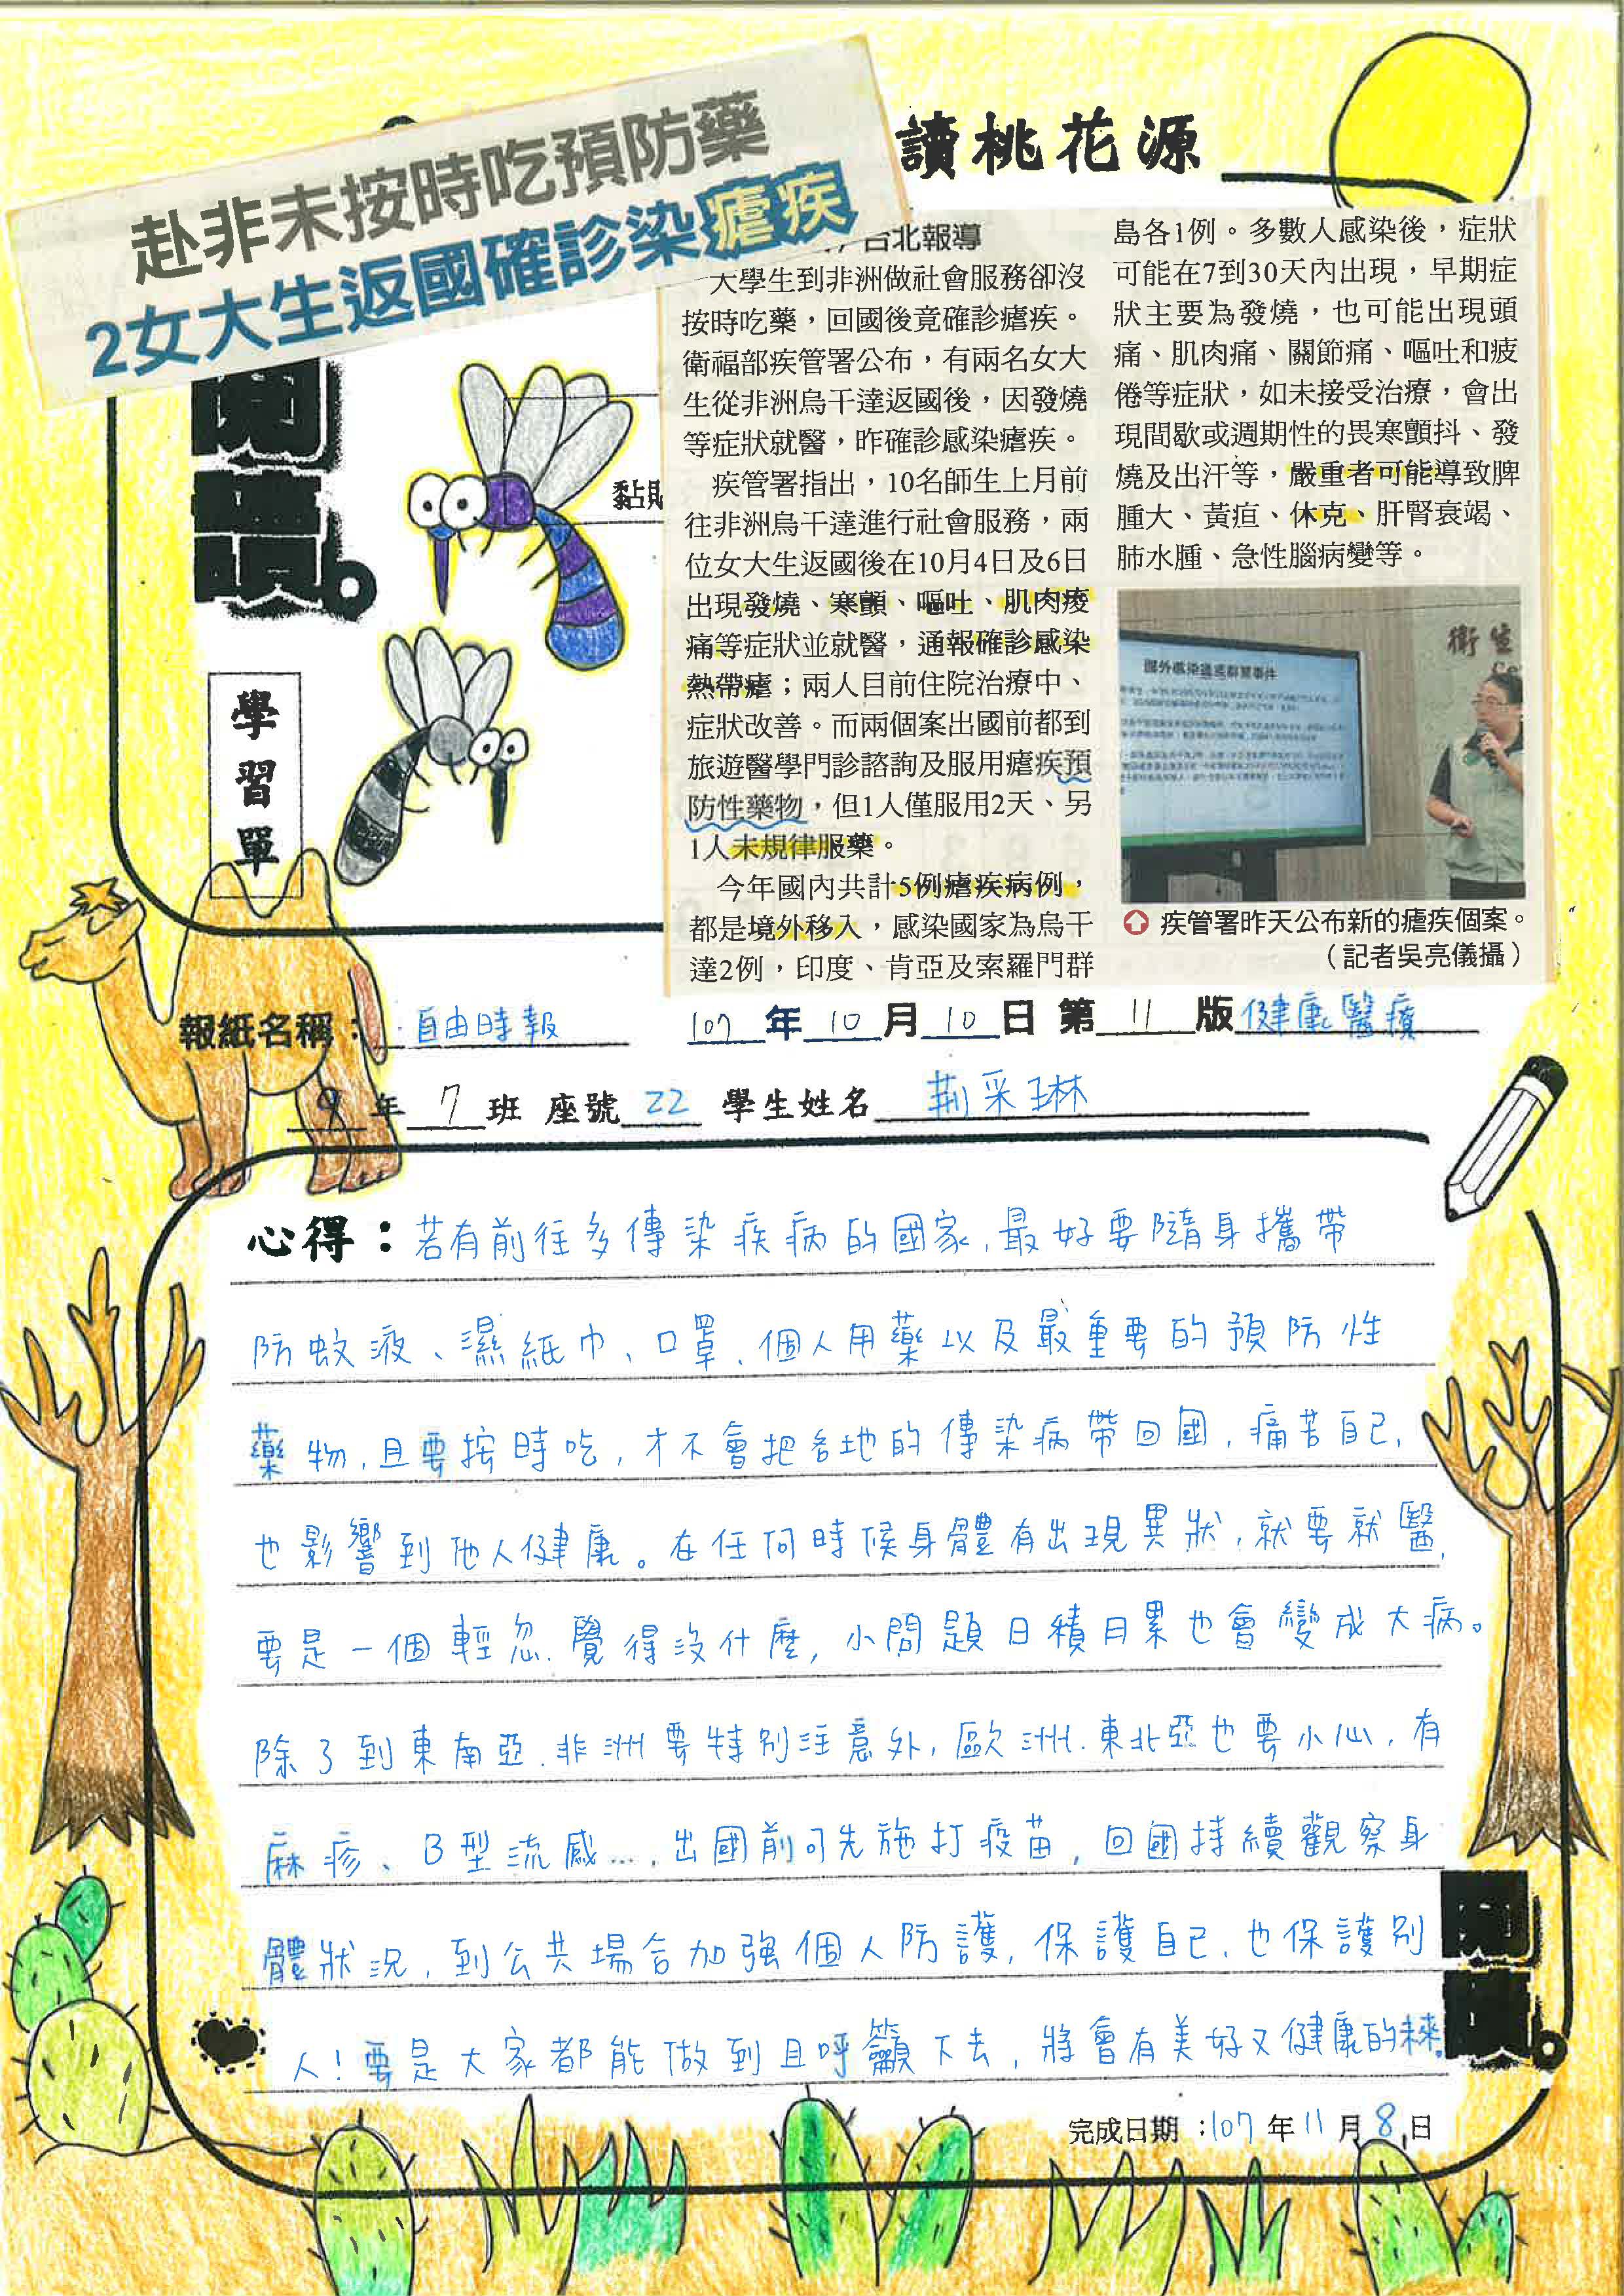 讀桃花源
赴非未按時吃預防藥
2女大生返國確診染瘧疾
台北報導
大學生到非洲做社會服務卻沒
按時吃藥，回國後竟確診瘧疾。
衛福部疾管署公布，有兩名女大
生從非洲烏干達返國後，因發燒
等症狀就醫，昨確診感染瘧疾。
疾管署指出，10名師生上月前
往非洲烏干達進行社會服務，兩
位女大生返國後在10月4日及6日
出現發燒、寒顫、嘔吐、肌肉痠
痛等症狀並就醫，通報確診感染
熱帶瘧；兩人目前住院治療中、
症狀改善。而兩個案出國前都到
旅遊醫學門診諮詢及服用瘧疾預
防性藥物，但1人僅服用2天、另
1人未規律服藥。
今年國內共計5例瘧疾病例，
都是境外移入，感染國家為烏干
達2例，印度、肯亞及索羅門群
島各1例。多數人感染後，症狀
可能在7到30天內出現，早期症
狀主要為發燒，也可能出現頭
痛、肌肉痛、關節痛、嘔吐和疲
倦等症狀，如未接受治療，會出
現間歇或週期性的畏寒顫抖、發
燒及出汗等，嚴重者可能導致脾
腫大、黃疸、休克、肝腎衰竭、
肺水腫、急性腦病變等。
衛生
疾管署昨天公布新的瘧疾個案。
（記者吳亮儀攝）
閱讀。
黏貼
學習單
報紙名稱：自由時報 107年10月10日第11版健康醫療
9年7班 座號22 學生姓名荊采琳
心得：若有前往多傳染疾病的國家，最好要隨身攜帶
防蚊液、濕紙巾、口罩、個人用藥以及最重要的預防性
藥物，且要按時吃，才不會把各地的傳染病帶回國，痛苦自己，
也影響到他人健康。在任何時候身體有出現異狀，就要就醫，
要是一個輕忽、覺得沒什麼，小問題日積月累也會變成大病。
除了到東南亞、非洲要特別注意外，歐洲、東北亞也要小心，有
麻疹、B型流感…，出國前可先施打疫苗，回國持續觀察身
體狀況，到公共場合加強個人防護，保護自己，也保護別
人！要是大家都能做到且呼籲下去，將會有美好又健康的未來。
閱讀。
完成日期：107年11月8日